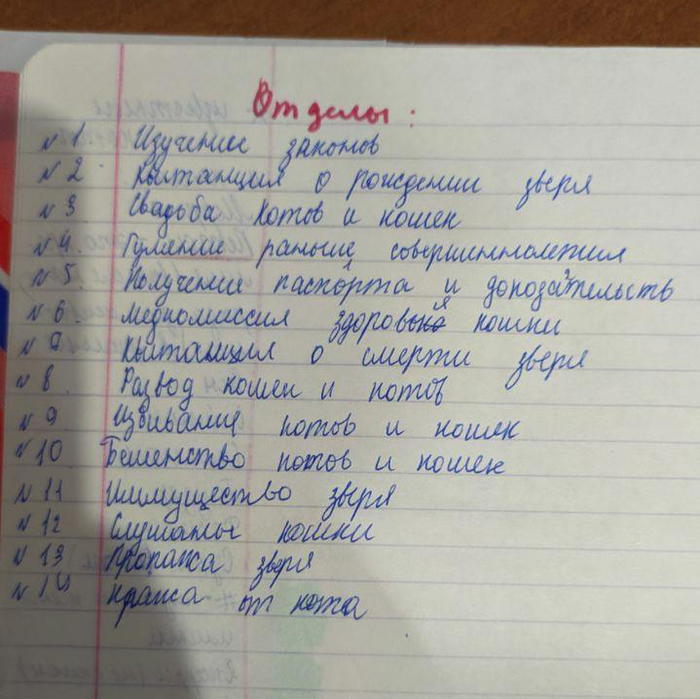 Отделы:
№1 Изучение законов
№2 Квитанция о рождении зверя
№3 Свадьба котов и кошек
№4. Гуляние раньше совершеннолетия
№5. Получение паспорта и допозательств
№6. Медкомиссия здоровья кошки
№7 Квитанция о смерти зверя
№8. Развод кошек и котов
№9 Избивания котов и кошек
№10 Бешенство котов и кошек
№11 Иммущество зверя
№12 Слушаны кошки
№13 Пропажа зверя
№14 Кража от кота